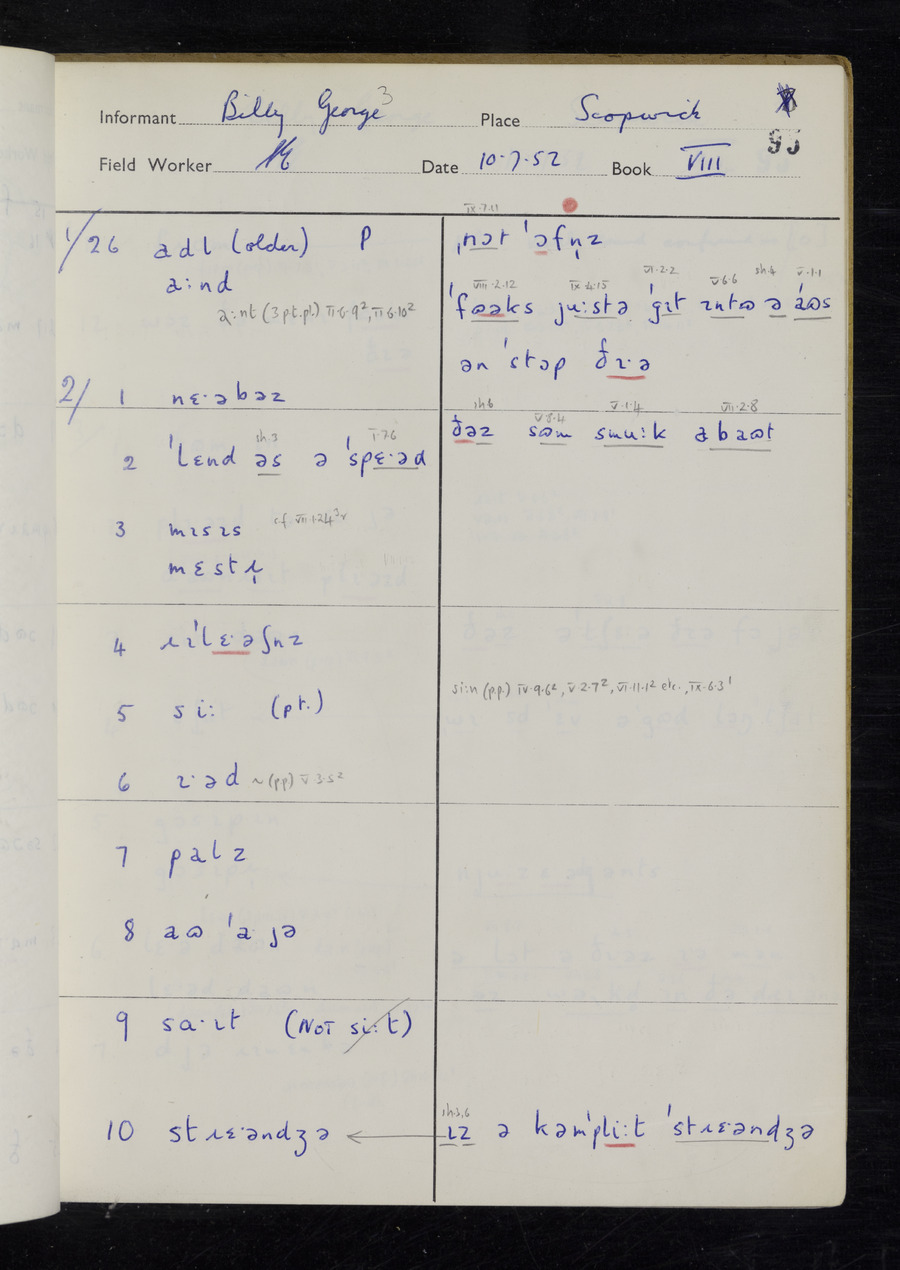 Informant Billy George 3 Place Scopwick 8
95
Field Worker Date 10·7·52 Book VIII
IX·7·11
1/26 adl (older) P ˌnɔt ˈɔfn̩z
a:nd
VIII·2·12 IX·4·15 VI·2·2 V·6·6 sh.4 V·1·1
a:nt (3 pt.pl.) VI·6·9², VI·6·10² ˈfʊəks ju:stə ˈgɪt ɪntʊ ə ˈaʊs
ən ˈstɔp ðɪ·ə
2/ 1 nɛ·əbəz
sh.6 V·8·4 V·1·4 VII·2·8
ðəz sʊm smu:k abaʊt
sh.3 I·7·6
2 ˈlɛnd əs ə ˈspɛ·əd
3 mɪsɪs c.f. VII·1·24³ᵛ
mɛstɹ̩
4 ɹɪˈlɛ·əʃnz
5 si: (pt.) si:n (p.p.) IV·9·6², V·2·7², VI·11·1² etc., IX·6·3¹
6 ɪ·əd ~ (pp) V·3·5²
7 palz
8 aʊ ˈa jə
9 sa·ɪt (NOT si:t)
sh.3,6
10 stɹɛ·əndʒə ← ɪz ə kəmˈpli:t ˈstɹɛ·əndʒə